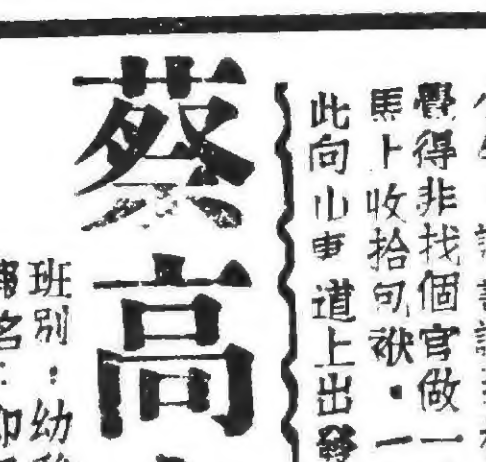 覺得非找個官做一
馬上收拾包袱・一
此向山東道上出發
蔡高
班別：幼
名：